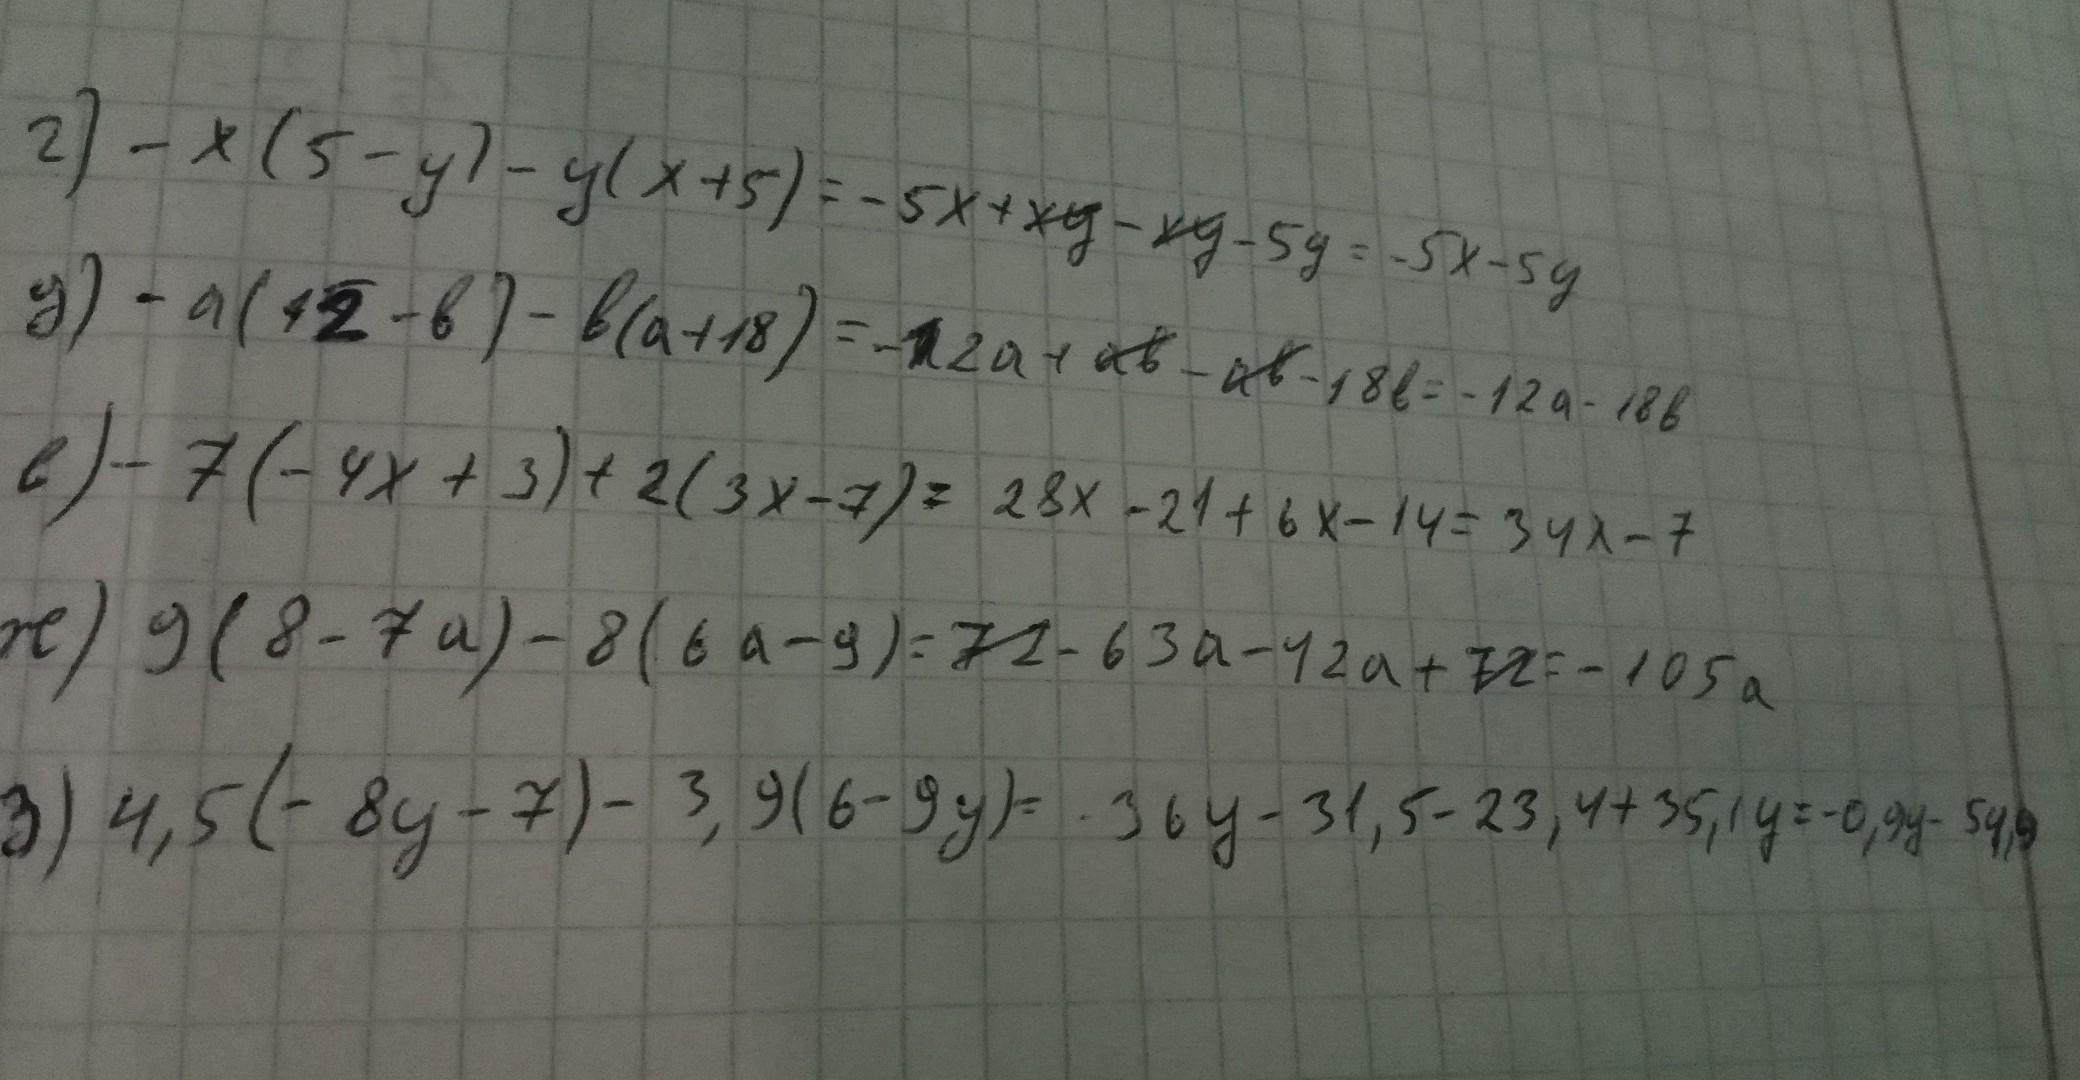 г) - x(5 - y) - y(x+5) = -5x + xy - xy - 5y = -5x - 5y
д) - a(12 - b) - b(a+18) = -12a + ab - ab - 18b = -12a - 18b
в) - 7(-4x + 3) + 2(3x - 7) = 28x - 21 + 6x - 14 = 34x - 7
ж) 9(8 - 7a) - 8(6a - 9) = 72 - 63a - 42a + 72 = -105a
з) 4,5(-8y - 7) - 3,9(6 - 9y) = -36y - 31,5 - 23,4 + 35,1y = -0,9y - 54,9